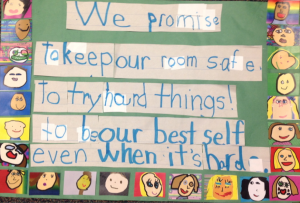 We promise
To keep our room safe.
To try hard things!
to be our best self
even when it's hard.